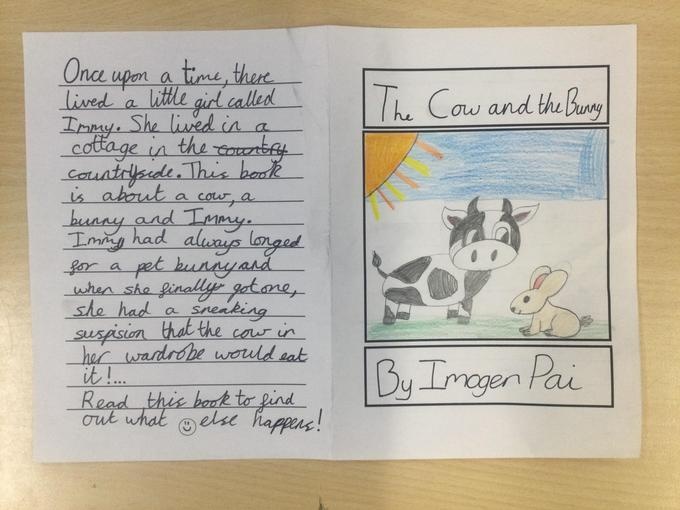 Once upon a time, there
lived a little girl called
Immy. She lived in a
cottage in the country
countryside. This book
is about a cow, a
bunny and Immy.
Immy had always longed
for a pet bunny and
when she finally got one,
she had a sneaking
suspision that the cow in
her wardrobe would eat
it!...
Read this book to find
out what else happens!
The Cow and the Bunny
By Imogen Pai